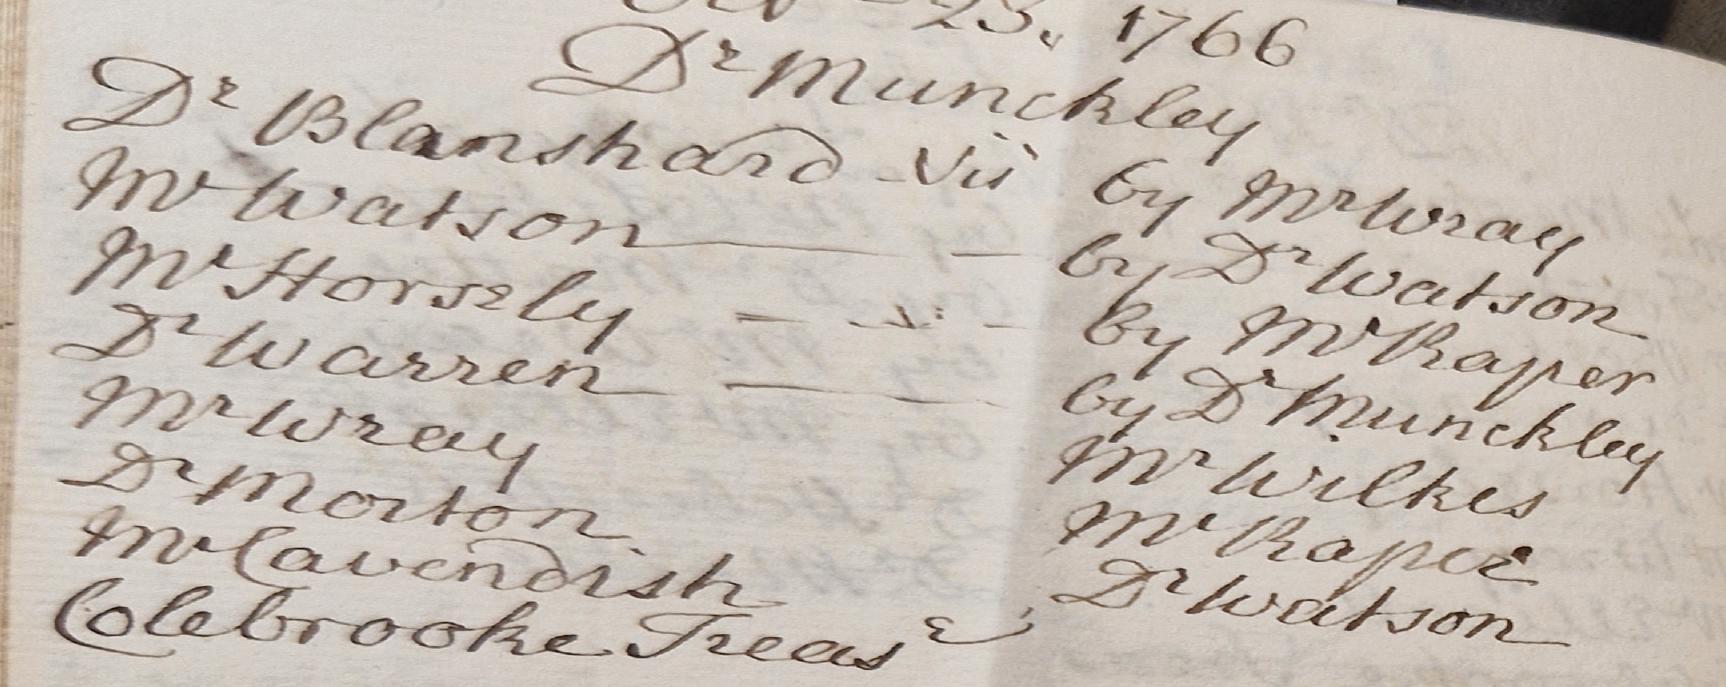 23. 1766
Dr Munckley
Dr Blanshard - Vis by Mr Wray
Mr Watson — — by Dr Watson
Mr Horsely — vi: - by Mr Raper
Dr Warren — by Dr Munckley
Mr Wray Mr Wilkes
Dr Morton Mr Raper
Mr Cavendish Dr Watson
Colebrooke Treasr